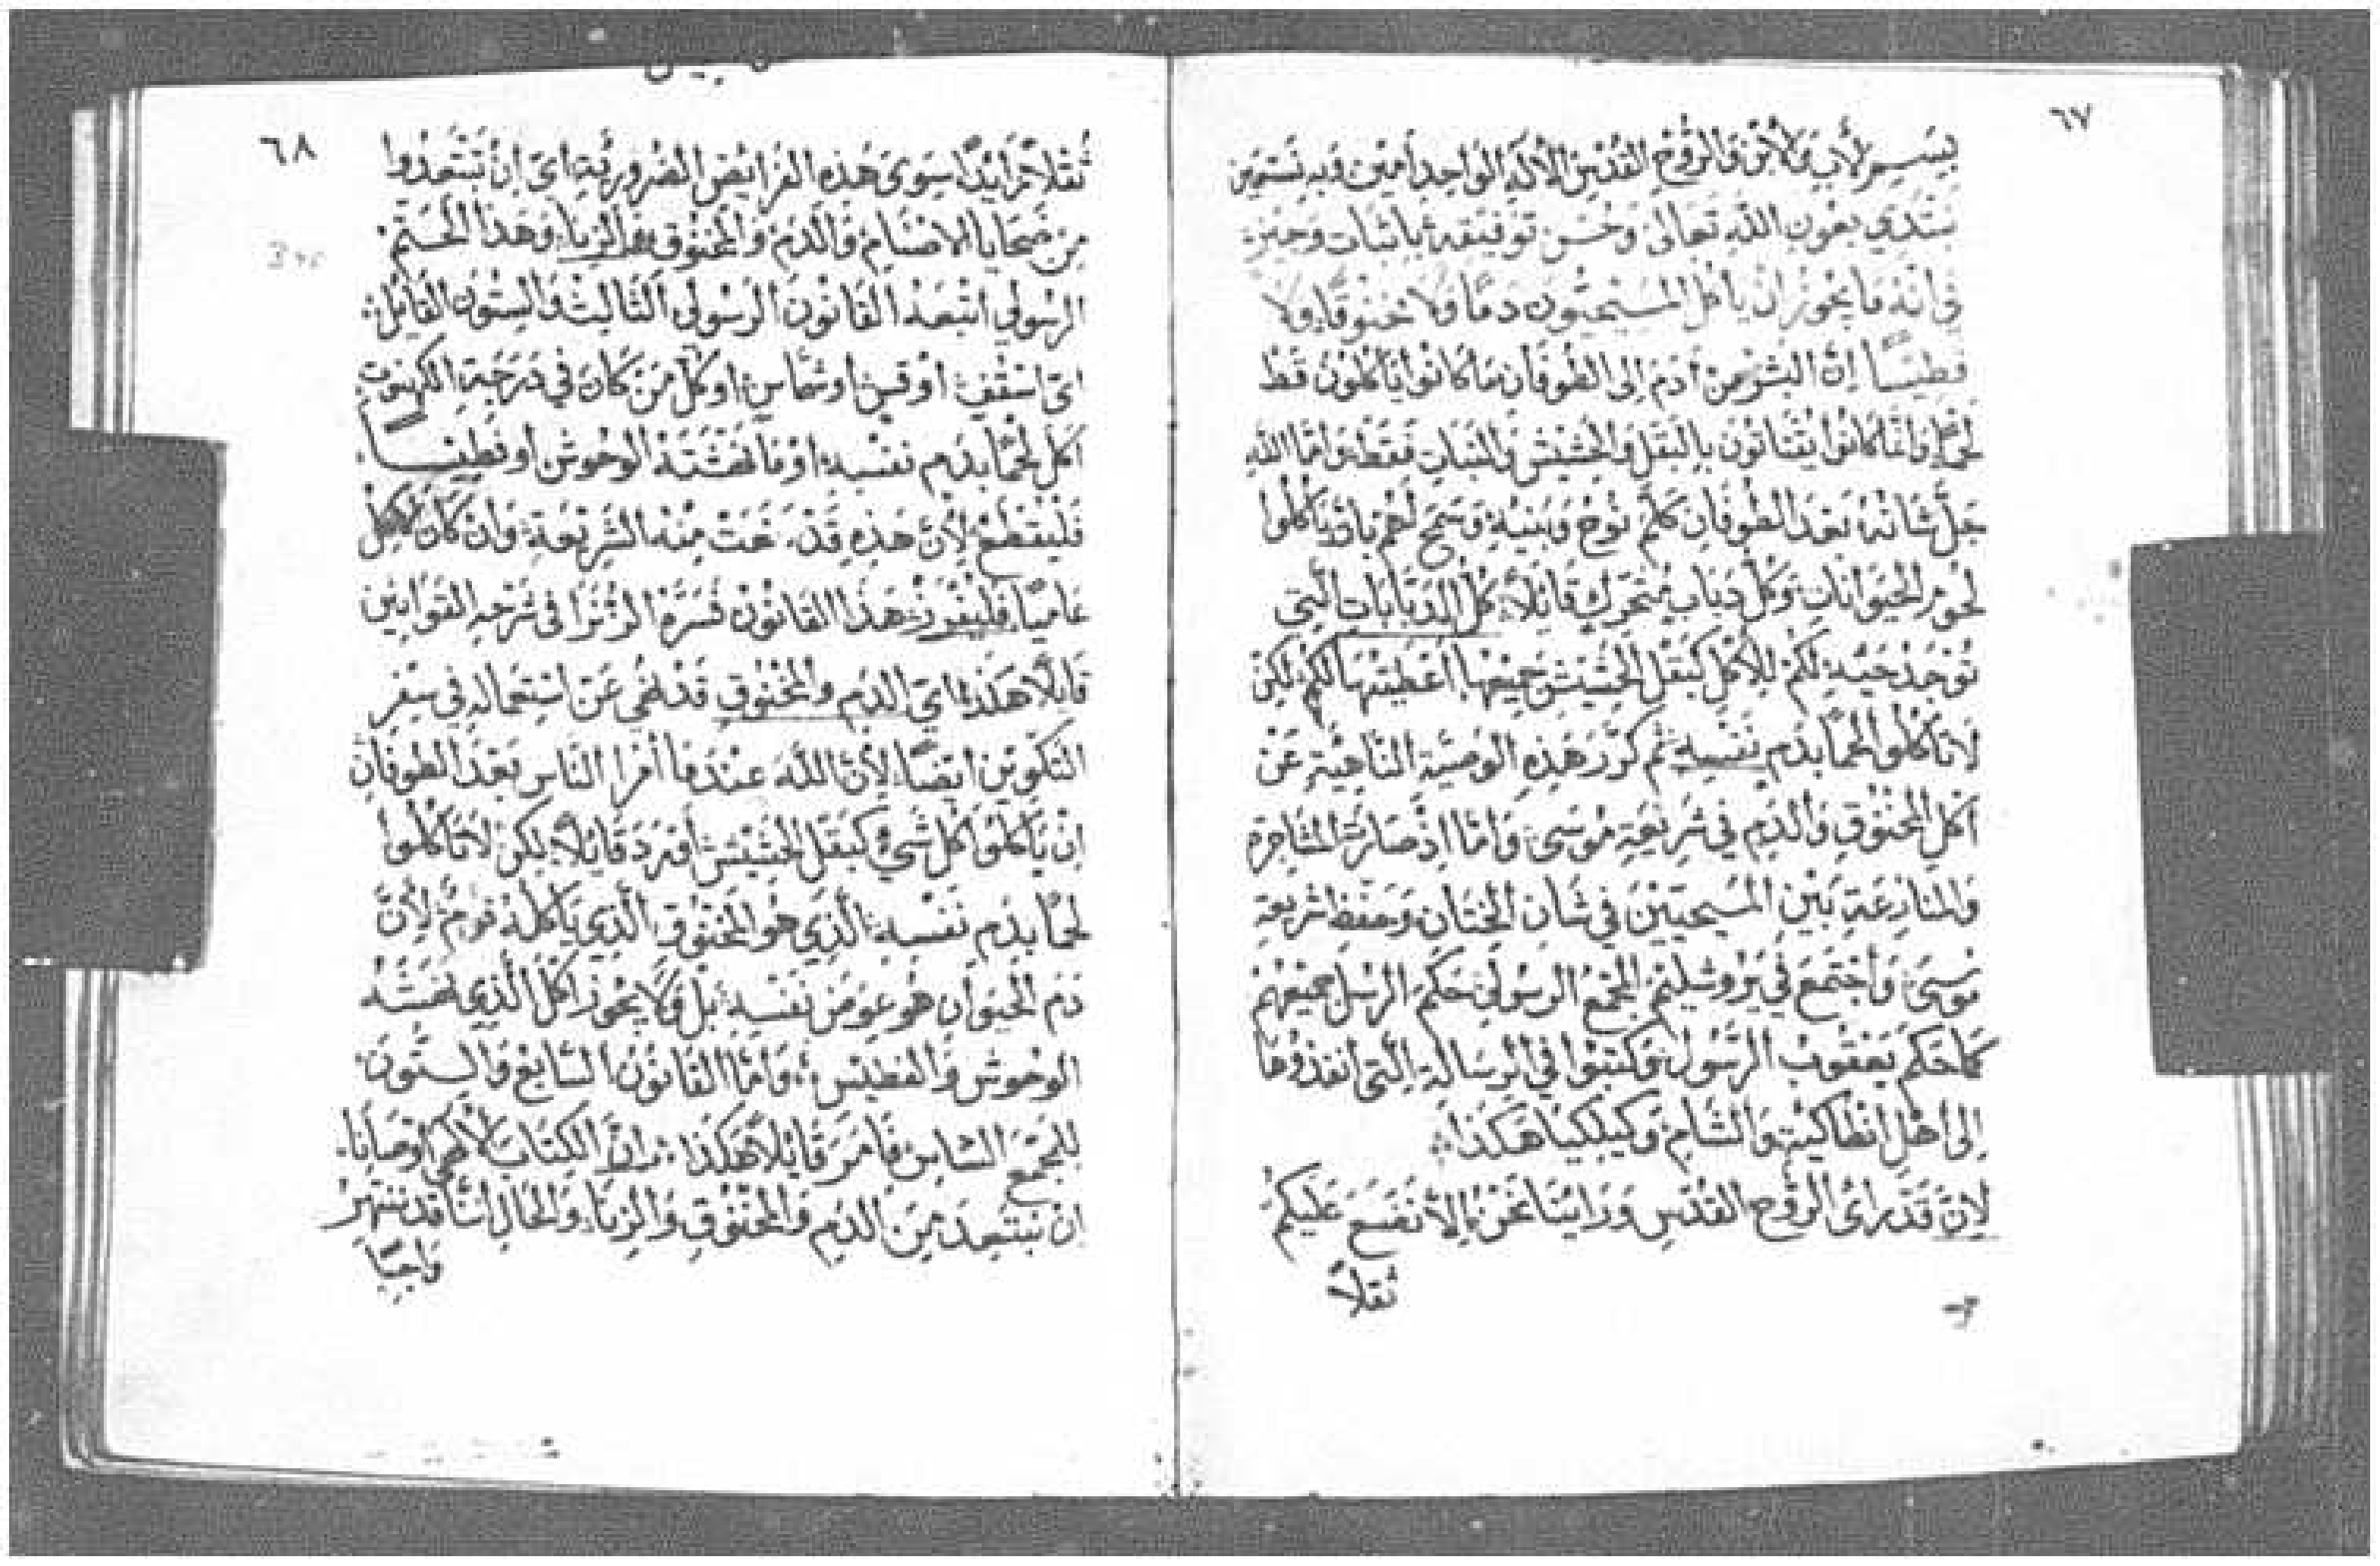 ٦٧
بسم الاب والابن والروح القدس الاله الواحد امين وبه نستعين
نبتدي بعون الله تعالى وحسن توفيقه باثبات وجيز
في انه ما يجوز ان ياكل المسيحيون دمًا ولا مخنوقًا ولا
فطيسًا إنَّ البشر من ادم الى الطوفان ما كانوا ياكلون قط
لحمًا وانما كانوا يقتاتون بالبقل والحشيش والنبات فقط واما الله
جل شانه بعد الطوفان كلم نوح وبنيه وسمح لهم بان ياكلوا
لحوم الحيوانات وكل دباب متحرك قايلاً كل الدبابات التي
توجد حية لكم للاكل كبقل الحشيش جميعها اعطيتها لكم لكن
لا تاكلوا لحمًا بدم نفسه ثم كرر هذه الوصية الناهية عن
اكل المخنوق والدم في شريعة موسى واما اذ صارة المشاجرة
والمنازعة بين المسيحيين في شان الختان وحفظ شريعة
موسى واجتمع في يروشليم المجمع الرسولي حكم الرسل جميعهم
كما حكم يعقوب الرسول وكتبوا في الرسالة التي انفذوها
الى اهل انطاكية والشام وكيليكيا هكذا
لان قد راى الروح القدس وراينا نحن الا نضع عليكم
ثقلاً
٦٨
ثقلاً زايدًا سوى هذه الفرايض الضرورية اي ان تبتعدوا
من ضحايا الاصنام والدم والمخنوق والزنا وهذا الختم
الرسولي اتبعه القانون الرسولي الثالث والستون القايل
اي اسقف او قس او شماس او كل من كان في درجة الكهنوت
اكل لحمًا بدم نفسه او ما نهشته الوحوش او فطيسًا
فليقطع لان هذه قد نهت منه الشريعة وان كان
عاميًا فليفرز هذا القانون فسره الزنرا في شرحه القوانين
قايلاً هكذا اي الدم والمخنوق قد نهي عن استعماله في سفر
التكوين ايضًا لان الله عندما امر الناس بعد الطوفان
ان ياكلوا كل شي كبقل الحشيش اورد قايلاً لكن لا تاكلوا
لحمًا بدم نفسه الذي هو المخنوق الذي ياكله قوم لان
دم الحيوان هو عوض نفسه بل ولا يجوز اكل الذي نهشته
الوحوش والفطيس واما القانون السابع والستون
للمجمع السادس فامر قايلاً هكذا ان الكتاب الالهي اوصانا
ان نبتعد من الدم والمخنوق والزنا والحال اننا قد ننتهر
واجبًا